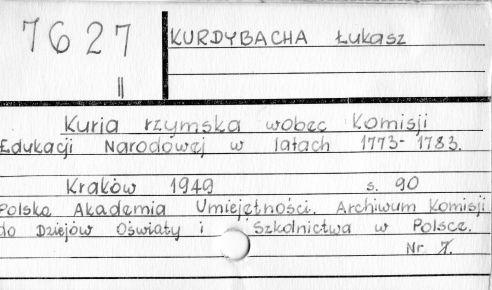 7627
KURDYBACHA Łukasz
||
Kuria rzymska wobec Komisji
Edukacji Narodowej w latach 1773-1783.
Kraków 1949 s. 90
Polska Akademia Umiejętności. Archiwum Komisji
do Dziejów Oświaty i Szkolnictwa w Polsce.
Nr 7.